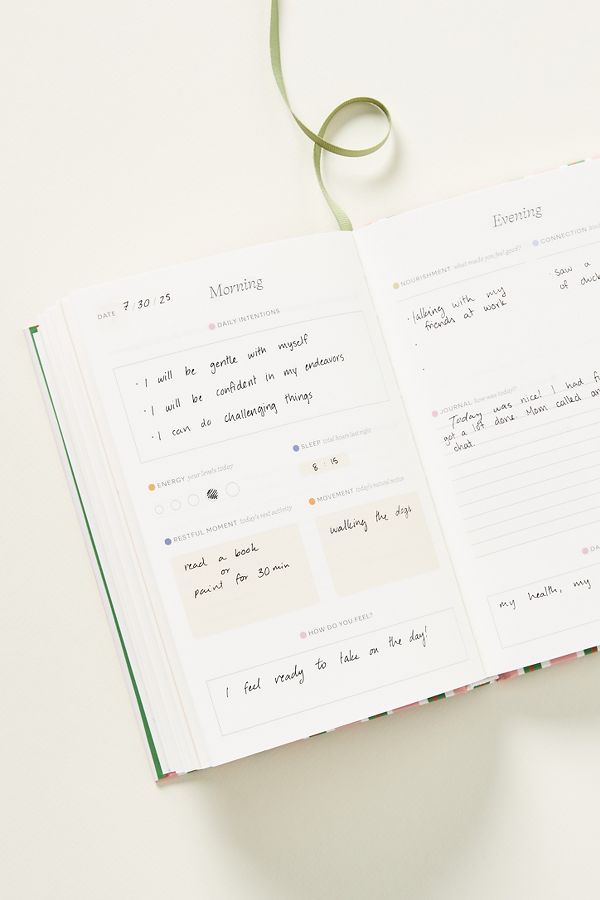 Morning
DATE 7 / 30 / 25
DAILY INTENTIONS
· I will be gentle with myself
· I will be confident in my endeavors
· I can do challenging things
ENERGY your levels today
SLEEP total hours last night
8 : 15
RESTFUL MOMENT today's rest activity
read a book
or
paint for 30 min
MOVEMENT
walking the dogs
HOW DO YOU FEEL?
I feel ready to take on the day!
Evening
NOURISHMENT what made you feel good?
· talking with my
friends at work
·
·
CONNECTION
· saw a
of
JOURNAL how was today?
Today was nice! I had
got a lot done. Mom called
chat.
my health, my